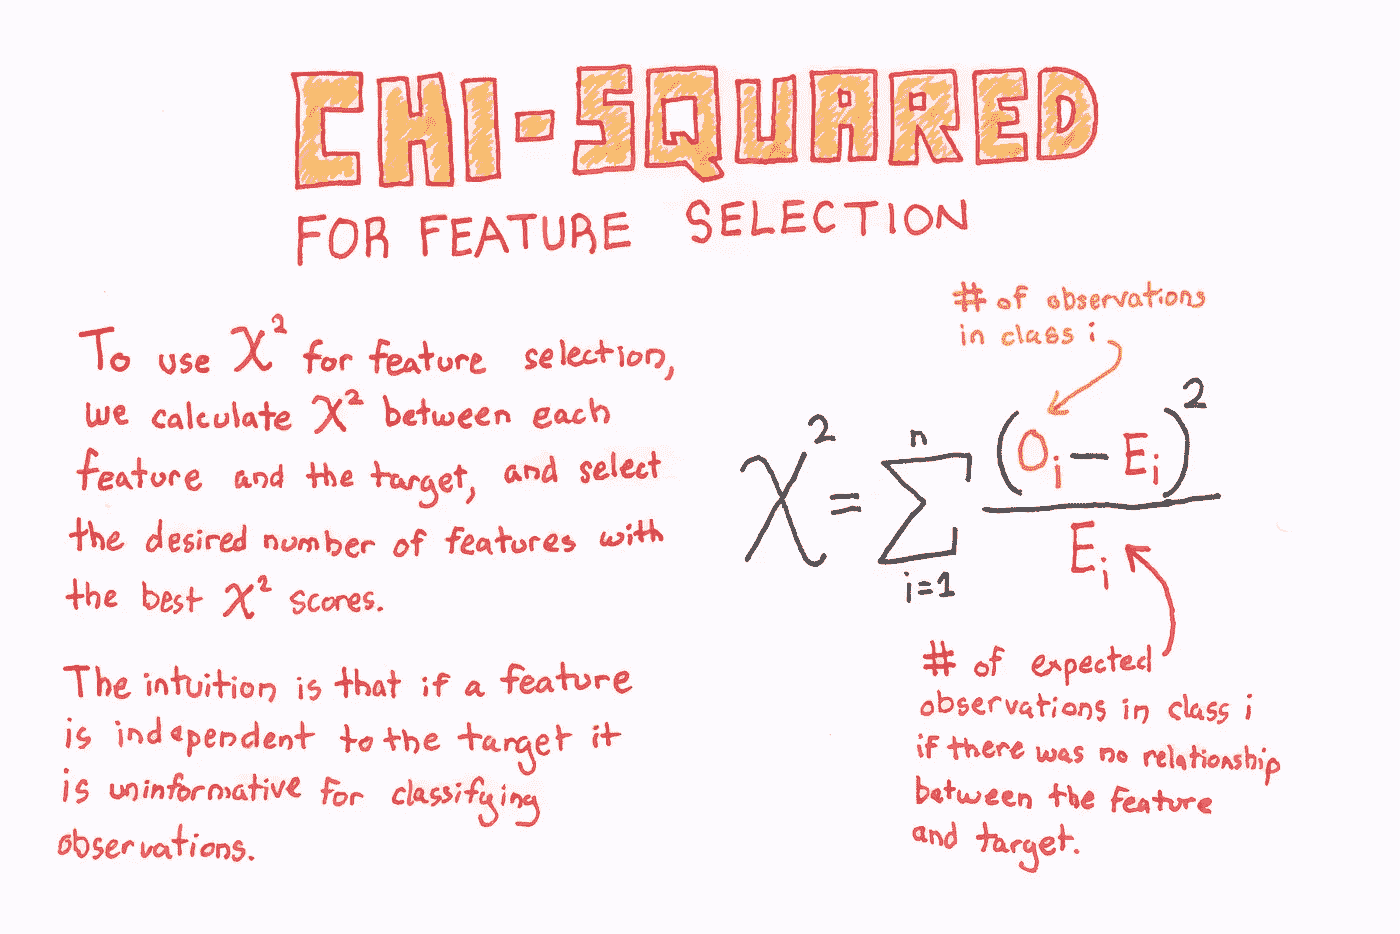 CHI-SQUARED
FOR FEATURE SELECTION
To use χ² for feature selection,
we calculate χ² between each
feature and the target, and select
the desired number of features with
the best χ² scores.
The intuition is that if a feature
is independent to the target it
is uninformative for classifying
observations.
# of observations
in class i
χ² = Σ_{i=1}^{n} (O_i − E_i)² / E_i
# of expected
observations in class i
if there was no relationship
between the feature
and target.